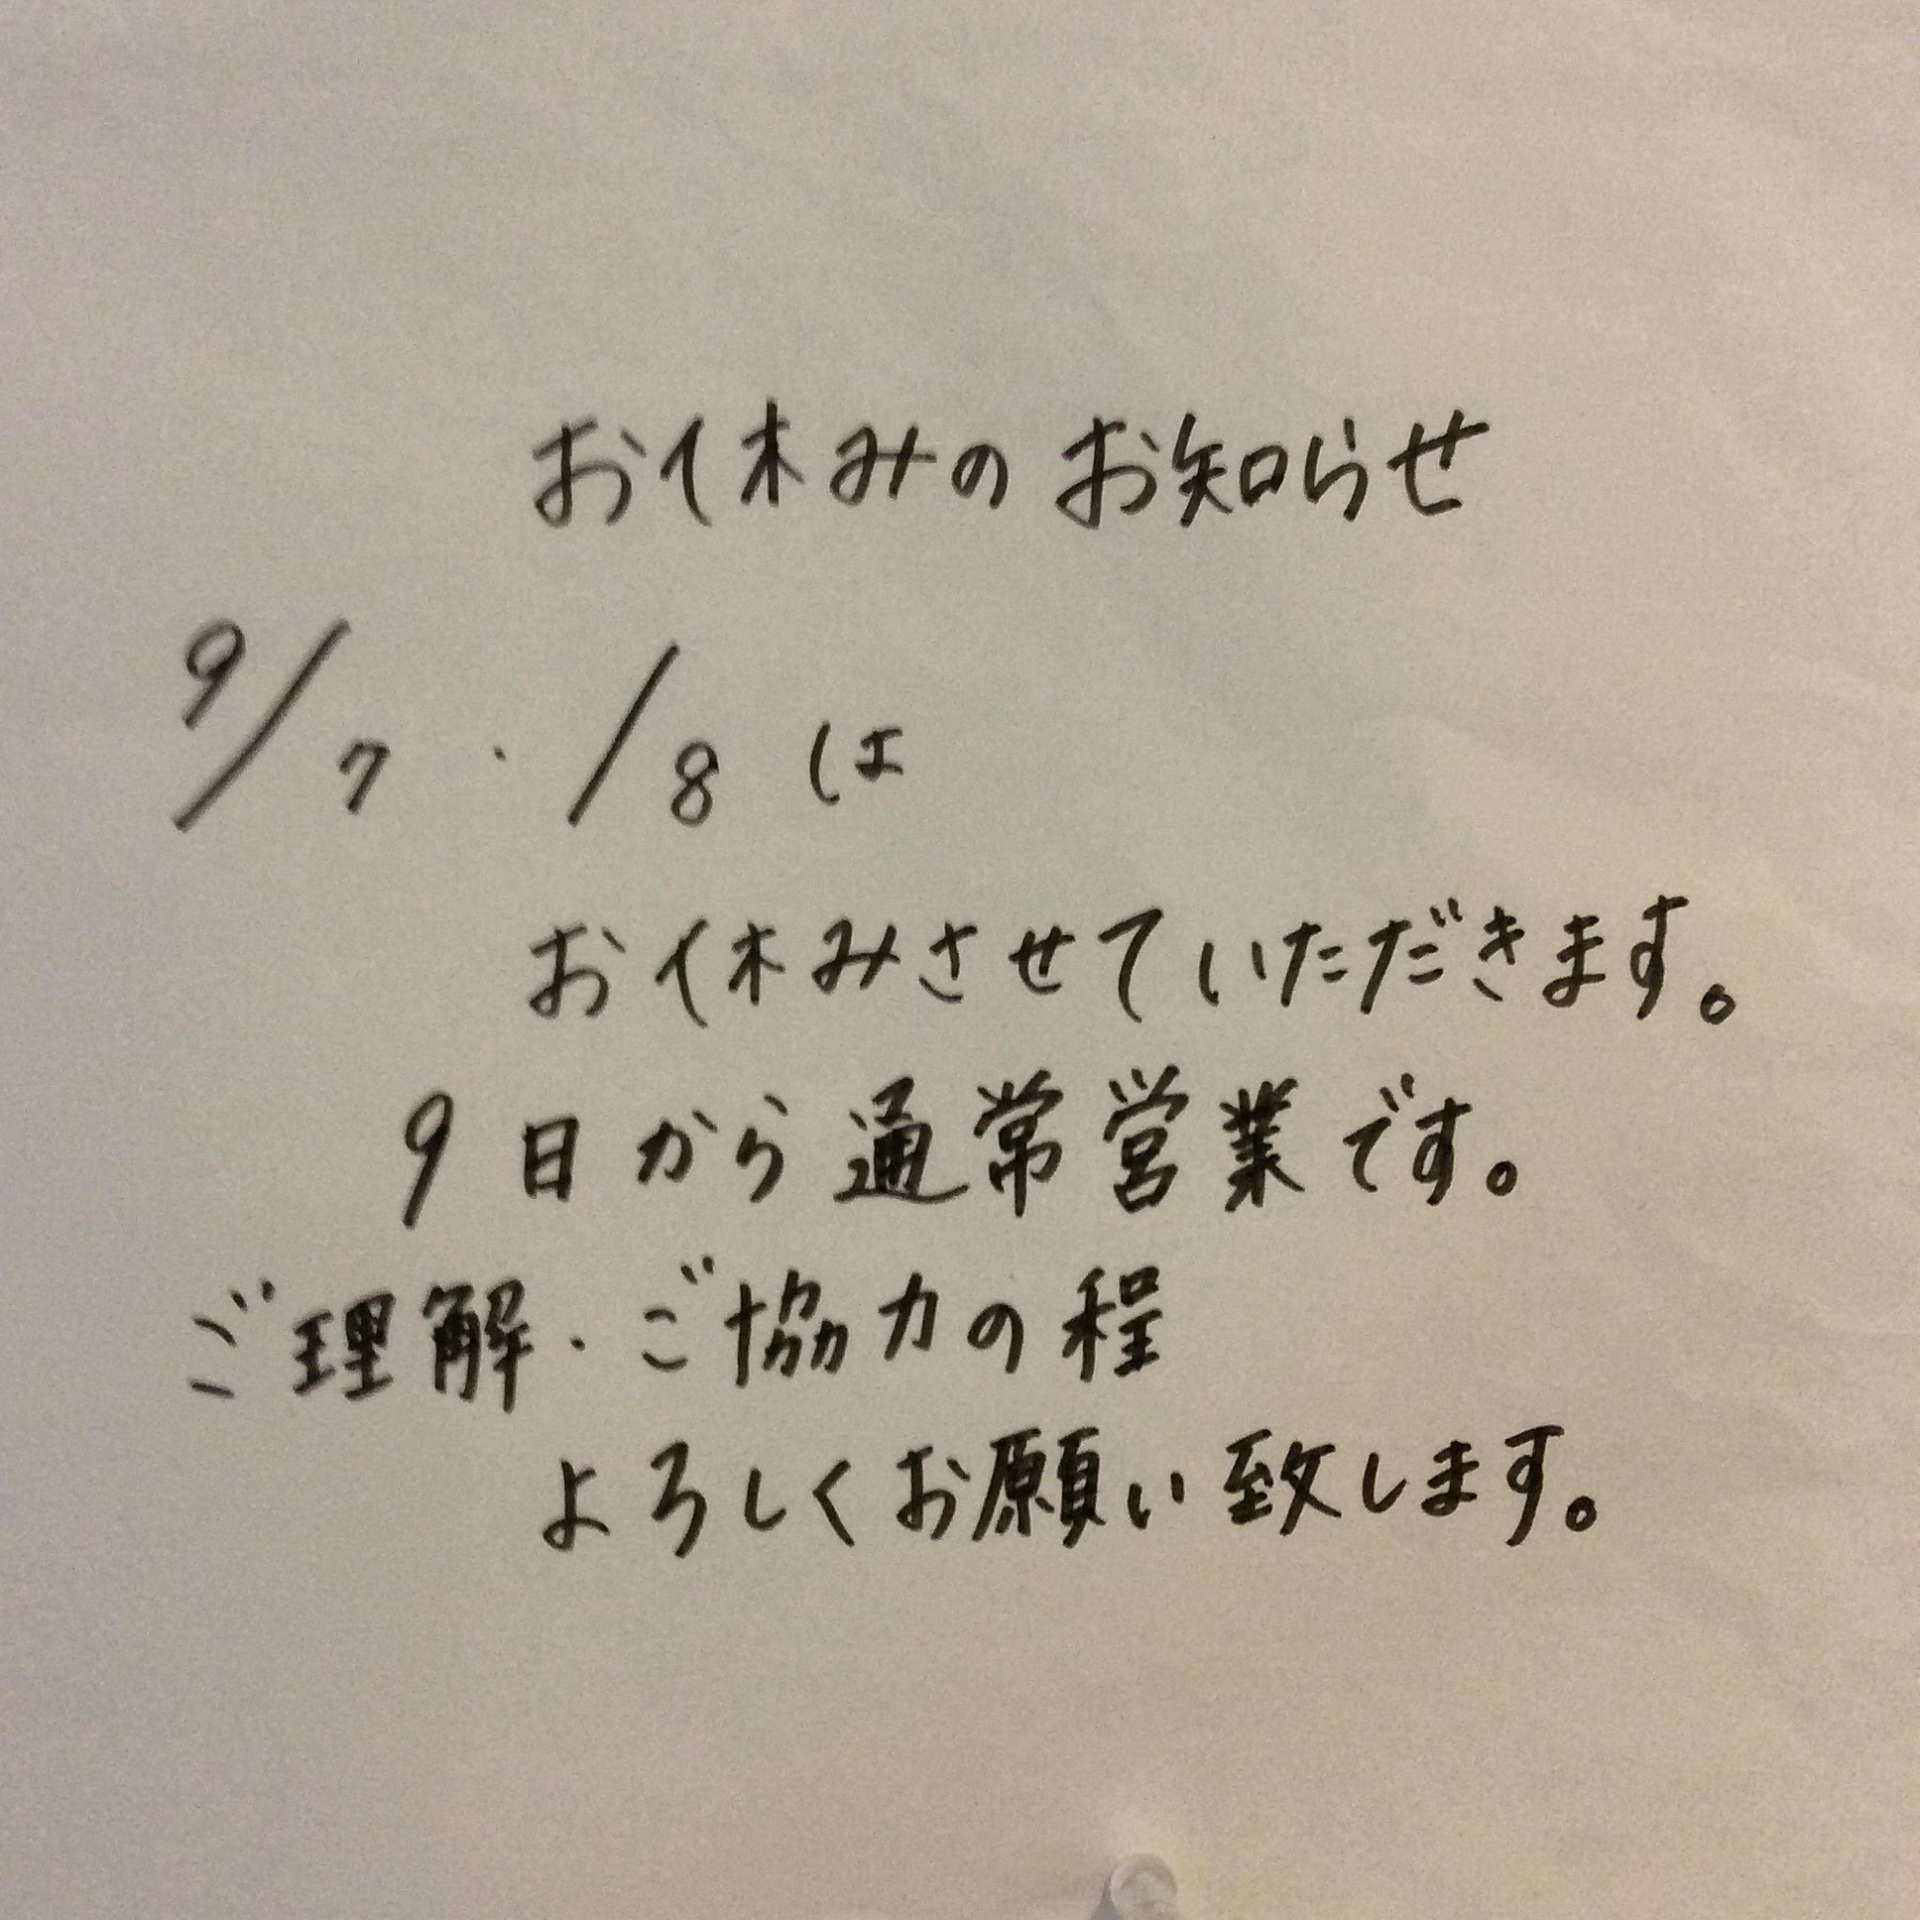 お休みのお知らせ
9/7・/8は
お休みさせていただきます。
9日から通常営業です。
ご理解・ご協力の程
よろしくお願い致します。